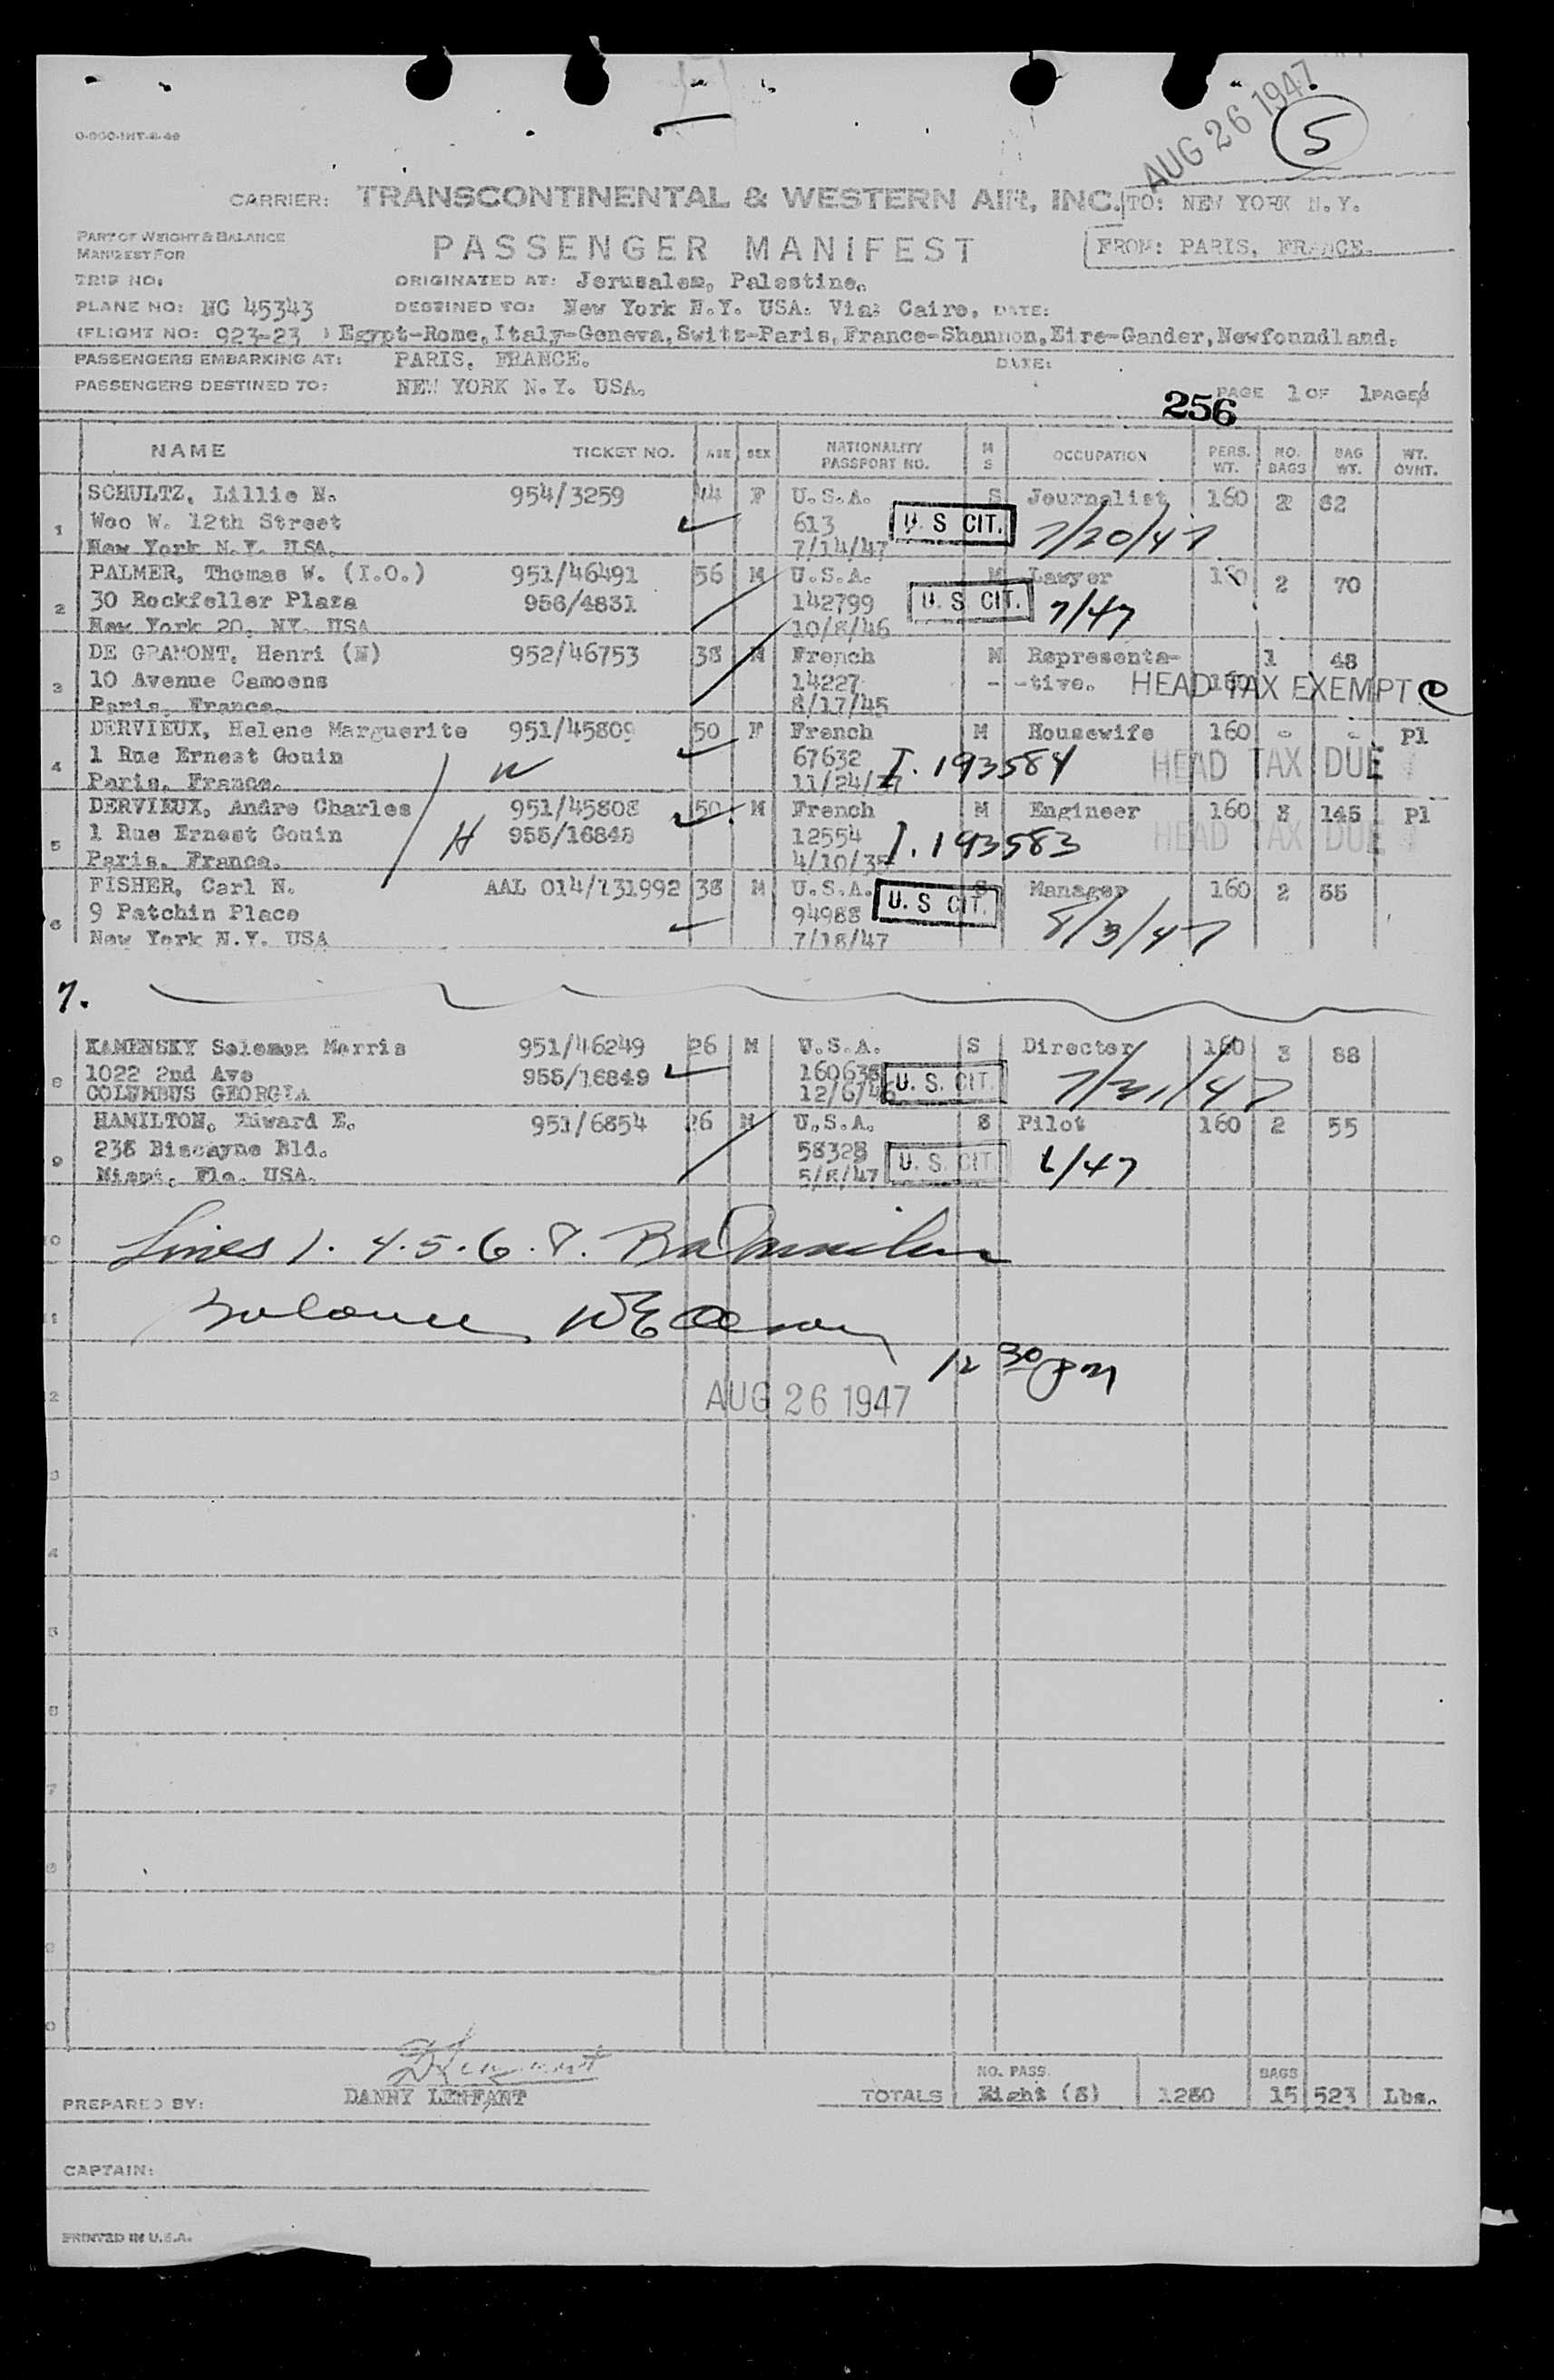 AUG 26 1947
5
CARRIER: TRANSCONTINENTAL & WESTERN AIR, INC. TO: NEW YORK N.Y.
PART OF WEIGHT & BALANCE
MANIFEST FOR
PASSENGER MANIFEST
FROM: PARIS, FRANCE.
TRIP NO:
ORIGINATED AT: Jerusalem, Palestine.
PLANE NO: NC 45343 DESTINED TO: New York N.Y. USA. Via: Cairo, DATE:
(FLIGHT NO: 923-23 ) Egypt-Rome,Italy-Geneva,Switz-Paris,France-Shannon,Eire-Gander,Newfoundland.
PASSENGERS EMBARKING AT: PARIS, FRANCE. DATE:
PASSENGERS DESTINED TO: NEW YORK N.Y. USA.
256 PAGE 1 OF 1 PAGES
NAME TICKET NO. AGE SEX NATIONALITY PASSPORT NO. M S OCCUPATION PERS. WT. NO. BAGS BAG WT. WT. OVHT.
SCHULTZ, Lillie N. 954/3259 44 F U.S.A. S Journalist 160 2 62
1 Woo W. 12th Street 613 U. S CIT. 7/20/47
New York N.Y. USA. 7/14/47
PALMER, Thomas W. (I.O.) 951/46491 56 M U.S.A. M Lawyer 160 2 70
2 30 Rockfeller Plaza 956/4831 142799 U. S CIT. 7/47
New York 20, NY. USA 10/8/46
DE GRAMONT, Henri (N) 952/46753 38 M French M Representa- 1 48
3 10 Avenue Camoens 14227 - -tive. 160 HEAD TAX EXEMPT
Paris, France. 8/17/45
DERVIEUX, Helene Marguerite 951/45809 50 F French M Housewife 160 - - Pl
4 1 Rue Ernest Gouin W 67632 I. 193584 HEAD TAX DUE
Paris, France. 11/24/37
DERVIEUX, Andre Charles 951/45808 50 M French M Engineer 160 3 145 Pl
5 1 Rue Ernest Gouin H 955/16848 12554 I. 193583 HEAD TAX DUE
Paris, France. 4/10/35
FISHER, Carl N. AAL 014/131992 38 M U.S.A. S Manager 160 2 55
6 9 Patchin Place 94988 U. S CIT. 8/3/47
New York N.Y. USA 7/18/47
7.
KAMENSKY Solomon Morris 951/46249 26 M U.S.A. S Director 160 3 88
8 1022 2nd Ave 955/16849 160638 U. S. CIT. 7/31/47
COLUMBUS GEORGIA 12/6/46
HAMILTON, Edward E. 951/6854 26 M U.S.A. S Pilot 160 2 55
9 238 Biscayne Bld. 58328 U. S. CIT. 6/47
Miami, Fla. USA. 5/8/47
Lines 1. 4. 5. 6. 8.
Balance
12 30 pm
AUG 26 1947
NO. PASS. BAGS
PREPARED BY: DANNY LENFANT TOTALS Eight (8) 1280 15 523 Lbs.
CAPTAIN:
PRINTED IN U.S.A.